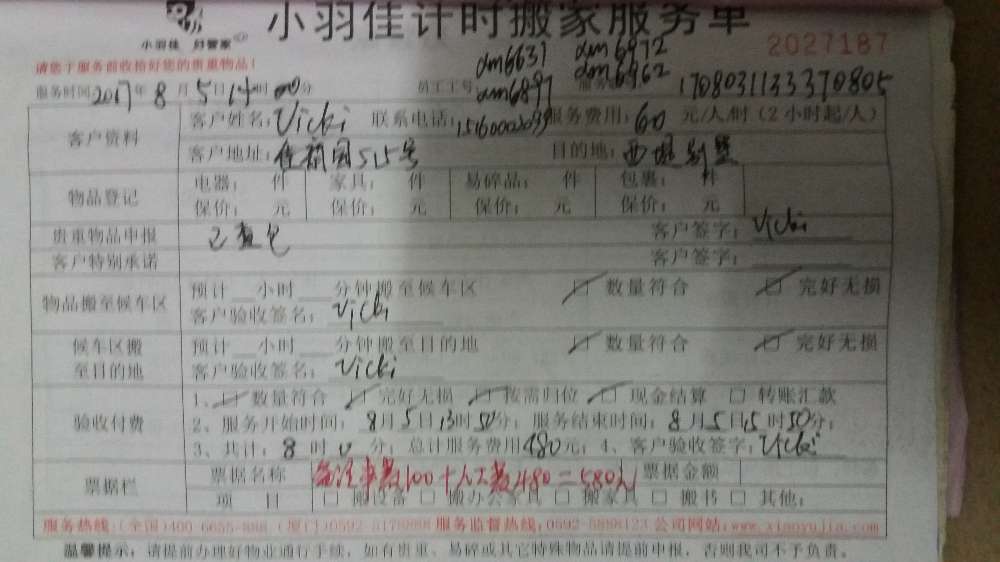 小羽佳计时搬家服务单
小羽佳 好管家
2027187
请您于服务前收拾好您的贵重物品!
dm6631 dm6972
服务时间2017年8月5日14时00分 员工工号 dm6897 dm6962 1708031133370805
客户资料 客户姓名:Vicki 联系电话: 服务费用:60元/人/时(2小时起/人)
客户地址:515号 目的地:西堤别墅
物品登记 电器: 件 家具: 件 易碎品: 件 包裹: 件
保价: 元 保价: 元 保价: 元 保价: 元
贵重物品申报 客户签字:Vicki
客户特别承诺 客户签字:
物品搬至候车区 预计__小时__分钟搬至候车区 □ 数量符合 □ 完好无损
客户验收签名:Vicki
候车区搬至目的地 预计__小时__分钟搬至目的地 □ 数量符合 □ 完好无损
客户验收签名:Vicki
验收付费 1、□ 数量符合 □ 完好无损 □ 按需归位 □ 现金结算 □ 转账汇款
2、服务开始时间:8月5日13时50分;服务结束时间:8月5日15时50分;
3、共计:8时0分;总计服务费用480元;4、客户验收签字:Vicki
票据栏 票据名称 票据金额
备注车费100+人工费480=580元
项 目 □ 搬设备 □ 搬办公家具 □ 搬家具 □ 搬书 □ 其他:
服务热线:(全国)400-6655-888、(厦门)0592-5179888 服务监督热线:0592-5898123 公司网站:www.xiaoyujia.com
温馨提示:请提前办理好物业通行手续,如有贵重、易碎或其它特殊物品请提前申报,否则我司不予负责。